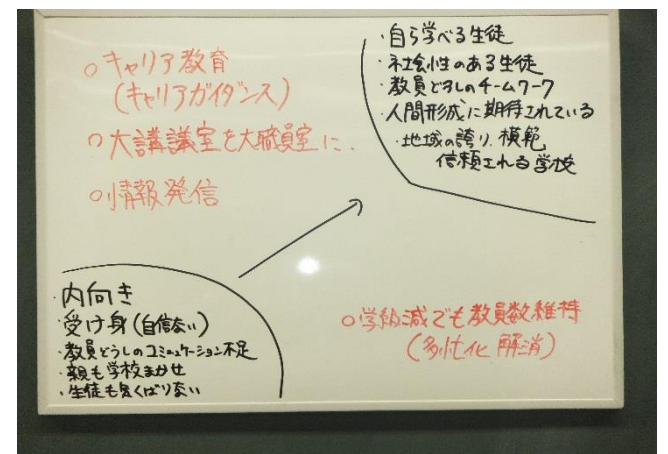 ○キャリア教育
(キャリアガイダンス)
○大講議室を大職員室に.
○情報発信
・自ら学べる生徒
・社会性のある生徒
・教員どうしのチームワーク
・人間形成に期待されている
・地域の誇り、模範
信頼される学校
内向き
・受け身(自信ない)
・教員どうしのコミュニケーション不足
・親も学校まかせ
・生徒も気くばりない
○学級減でも教員数維持
(多忙化 解消)